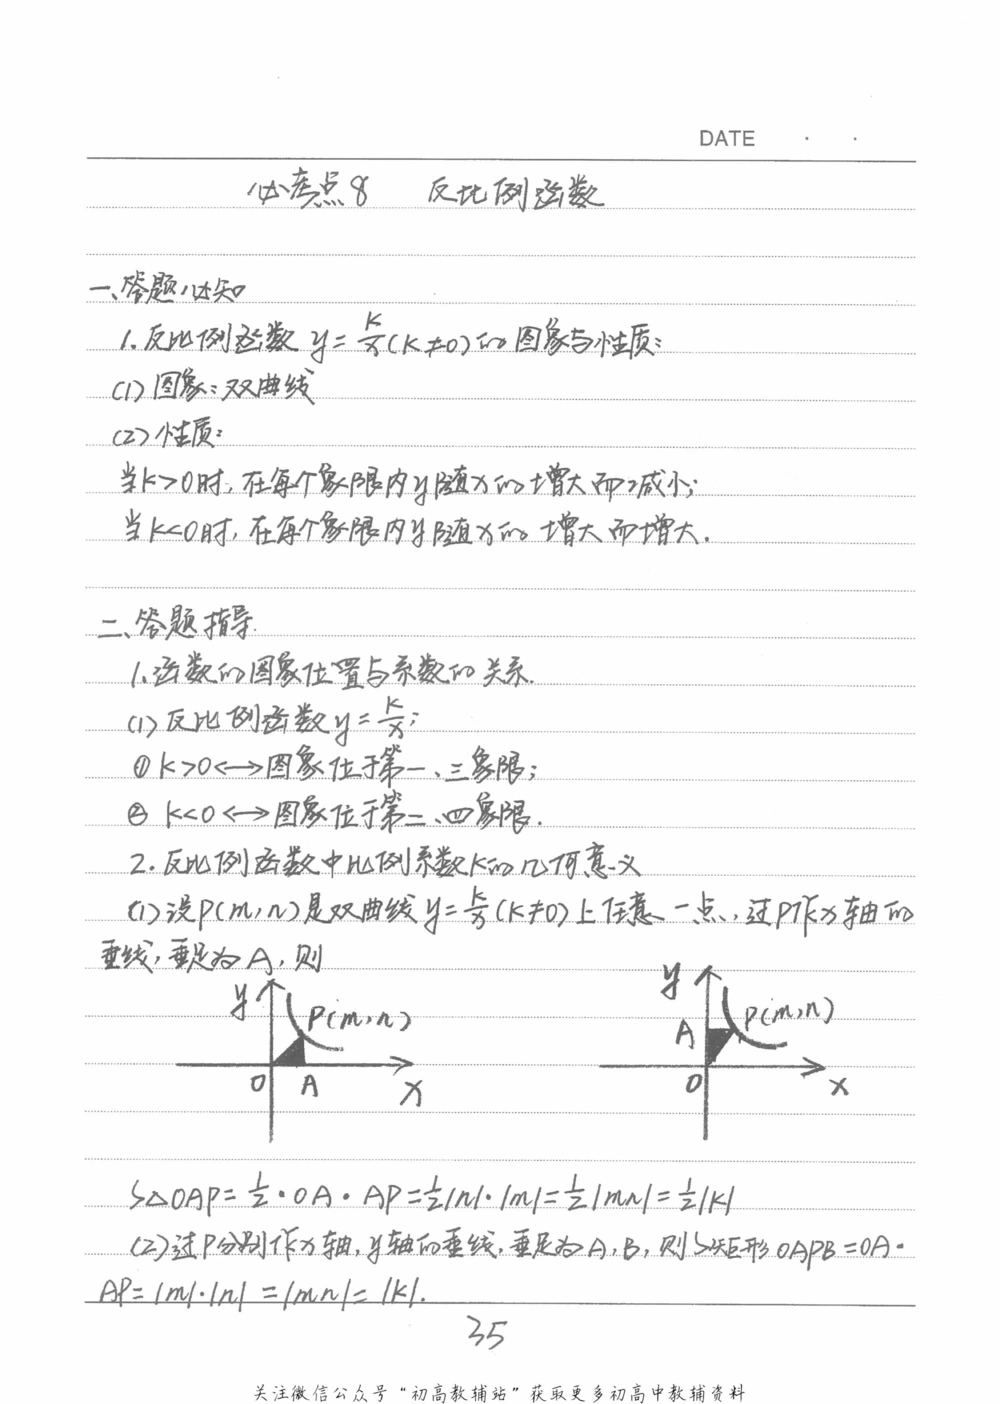 DATE · ·
必考点8 反比例函数
一、答题必知
1.反比例函数 y=k/x(k≠0)的图象与性质:
(1)图象:双曲线
(2)性质:
当k>0时,在每个象限内y随x的增大而减小;
当k<0时,在每个象限内y随x的增大而增大.
二、答题指导
1.函数的图象位置与系数的关系.
(1)反比例函数y=k/x;
①k>0<->图象位于第一、三象限;
②k<0<->图象位于第二、四象限.
2.反比例函数中比例系数k的几何意义
(1)设P(m,n)是双曲线y=k/x(k≠0)上任意一点,过P作x轴的
垂线,垂足为A,则
y P(m,n) O A x
y A P(m,n) O x
S△OAP=1/2·OA·AP=1/2|n|·|m|=1/2|mn|=1/2|k|
(2)过P分别作x轴,y轴的垂线,垂足为A,B,则S矩形OAPB=OA·
AP=|m|·|n|=|mn|=|k|.
35
关注微信公众号“初高教辅站”获取更多初高中教辅资料